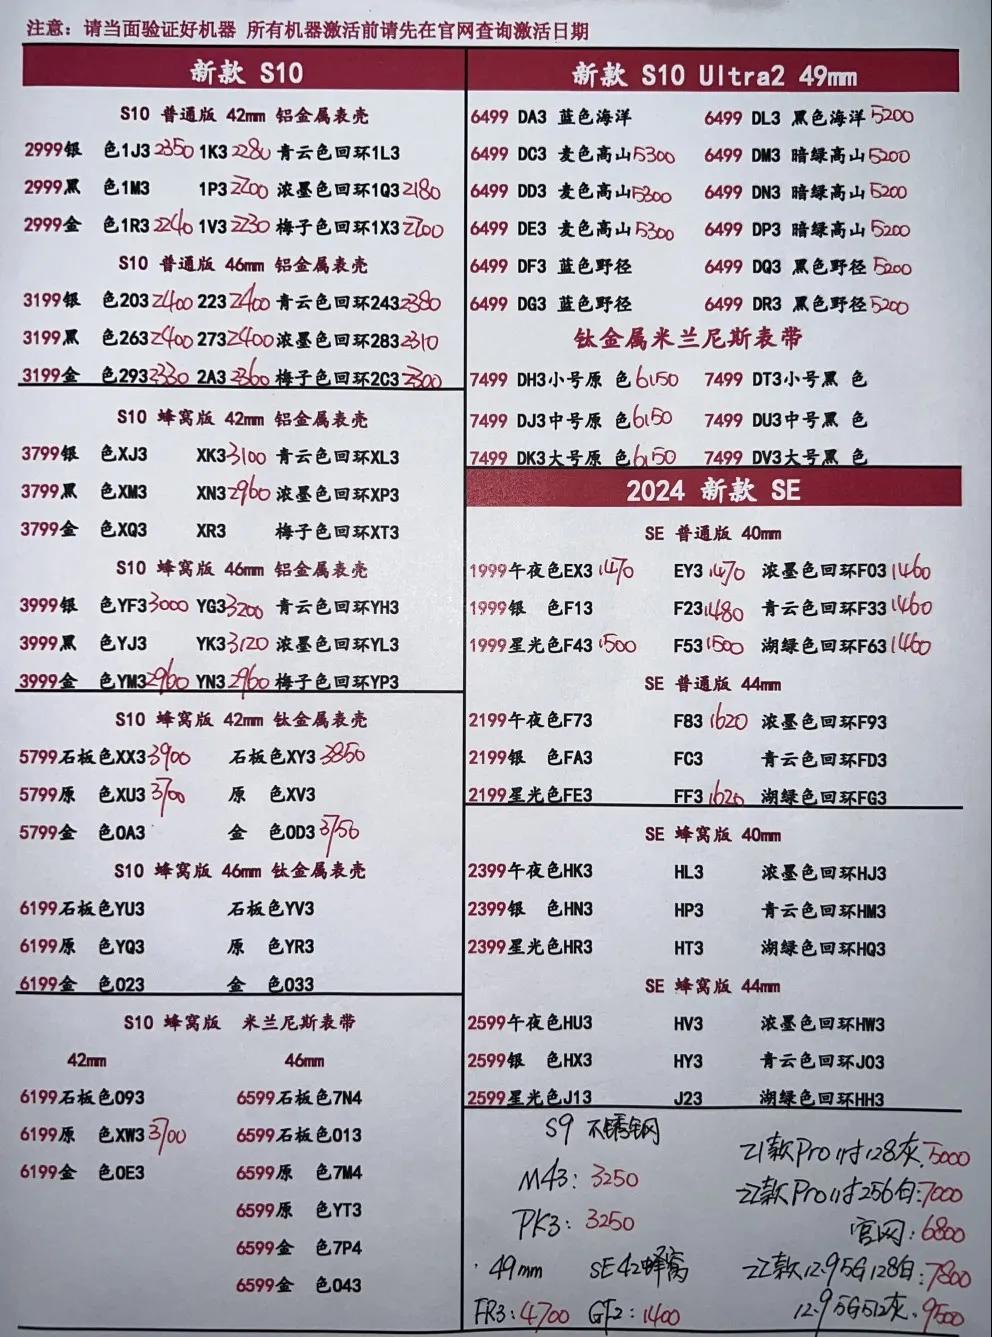 注意：请当面验证好机器 所有机器激活前请先在官网查询激活日期
新款 S10
S10 普通版 42mm 铝金属表壳
2999银 色1J3 2350 1K3 2280 青云色回环1L3
2999黑 色1M3 1P3 2200 浓墨色回环1Q3 2180
2999金 色1R3 2240 1V3 2230 梅子色回环1X3 2200
S10 普通版 46mm 铝金属表壳
3199银 色203 2400 223 2400 青云色回环243 2380
3199黑 色263 2400 273 2400 浓墨色回环283 2310
3199金 色293 2330 2A3 2360 梅子色回环2C3 2300
S10 蜂窝版 42mm 铝金属表壳
3799银 色XJ3 XK3 3100 青云色回环XL3
3799黑 色XM3 XN3 2960 浓墨色回环XP3
3799金 色XQ3 XR3 梅子色回环XT3
S10 蜂窝版 46mm 铝金属表壳
3999银 色YF3 3000 YG3 3200 青云色回环YH3
3999黑 色YJ3 YK3 3120 浓墨色回环YL3
3999金 色YM3 2960 YN3 2960 梅子色回环YP3
S10 蜂窝版 42mm 钛金属表壳
5799石板色XX3 3900 石板色XY3 3850
5799原 色XU3 3700 原 色XV3
5799金 色0A3 金 色0D3 3750
S10 蜂窝版 46mm 钛金属表壳
6199石板色YU3 石板色YV3
6199原 色YQ3 原 色YR3
6199金 色023 金 色033
S10 蜂窝版 米兰尼斯表带
42mm 46mm
6199石板色093 6599石板色7N4
6199原 色XW3 3700 6599石板色013
6199金 色0E3 6599原 色7M4
6599原 色YT3
6599金 色7P4
6599金 色043
新款 S10 Ultra2 49mm
6499 DA3 蓝色海洋 6499 DL3 黑色海洋 5200
6499 DC3 麦色高山 5300 6499 DM3 暗绿高山 5200
6499 DD3 麦色高山 5300 6499 DN3 暗绿高山 5200
6499 DE3 麦色高山 5300 6499 DP3 暗绿高山 5200
6499 DF3 蓝色野径 6499 DQ3 黑色野径 5200
6499 DG3 蓝色野径 6499 DR3 黑色野径 5200
钛金属米兰尼斯表带
7499 DH3小号原 色 6150 7499 DT3小号黑 色
7499 DJ3中号原 色 6150 7499 DU3中号黑 色
7499 DK3大号原 色 6150 7499 DV3大号黑 色
2024 新款 SE
SE 普通版 40mm
1999午夜色EX3 1470 EY3 1470 浓墨色回环F03 1460
1999银 色F13 F23 1480 青云色回环F33 1460
1999星光色F43 1500 F53 1500 湖绿色回环F63 1460
SE 普通版 44mm
2199午夜色F73 F83 1620 浓墨色回环F93
2199银 色FA3 FC3 青云色回环FD3
2199星光色FE3 FF3 1620 湖绿色回环FG3
SE 蜂窝版 40mm
2399午夜色HK3 HL3 浓墨色回环HJ3
2399银 色HN3 HP3 青云色回环HM3
2399星光色HR3 HT3 湖绿色回环HQ3
SE 蜂窝版 44mm
2599午夜色HU3 HV3 浓墨色回环HW3
2599银 色HX3 HY3 青云色回环J03
2599星光色J13 J23 湖绿色回环HH3
S9 不锈钢
M43：3250
PK3：3250
49mm SE42蜂窝
FR3：4700 GF2：1400
21款Pro 11寸128灰：5000
22款Pro 11寸256白：7000
官网：6800
22款12.9 5G128白：7800
12.9 5G512灰：9500